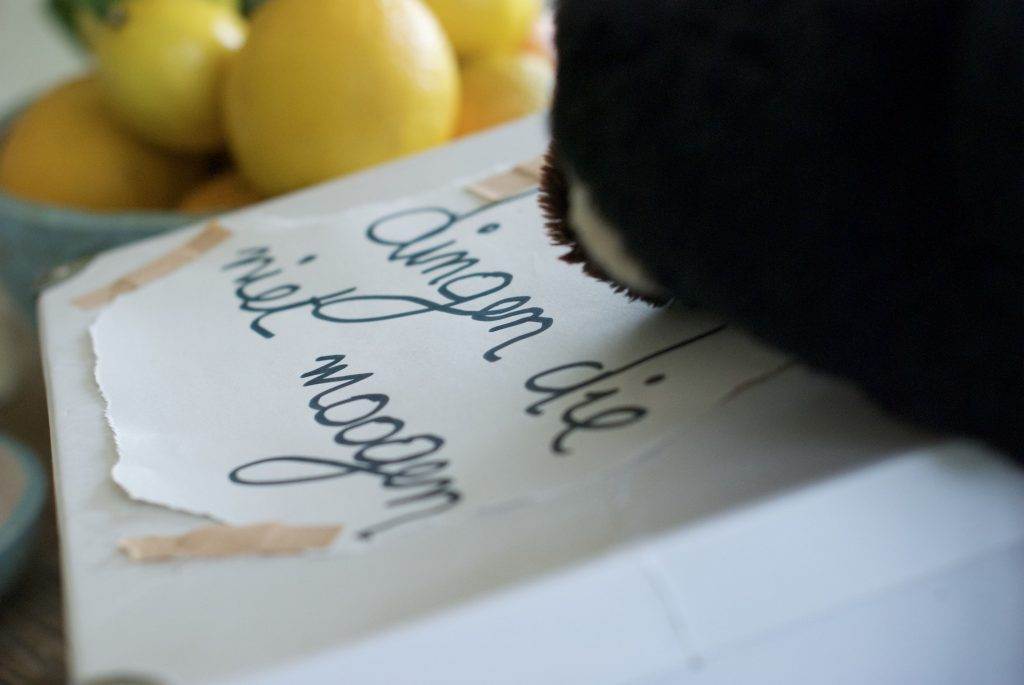 dingen die
niet mogen